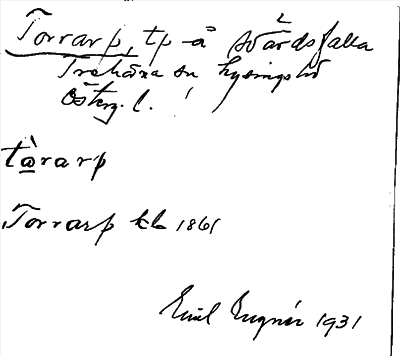 Torrarp, tp å Svärdsfalla
Trehörna sn Lysings hd
Österg. l.
tɷ̀rarp
Torrarp kb 1861
Emil 1931